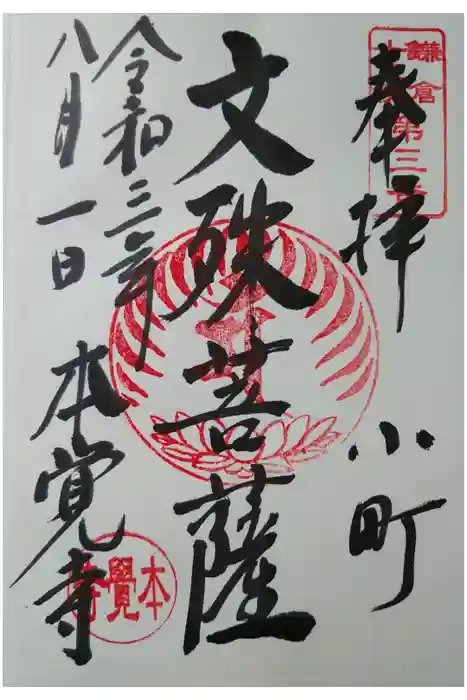 奉拝 小町
文殊菩薩
令和三年
八月一日 本覚寺
鎌倉
第三
本覺寺